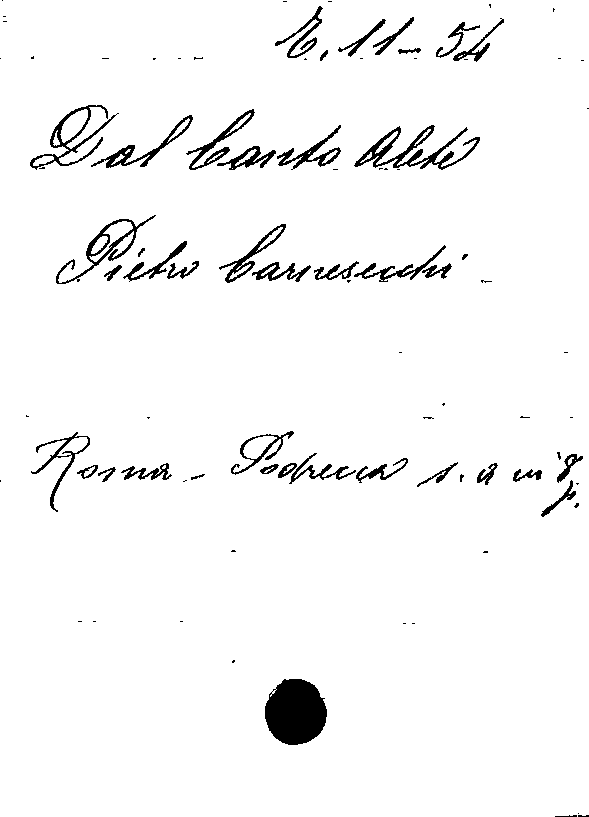 E. 11 - 54
Dal Canto Alete
Pietro Carnesecchi -
Roma - Podrecca s. a in 8
p.